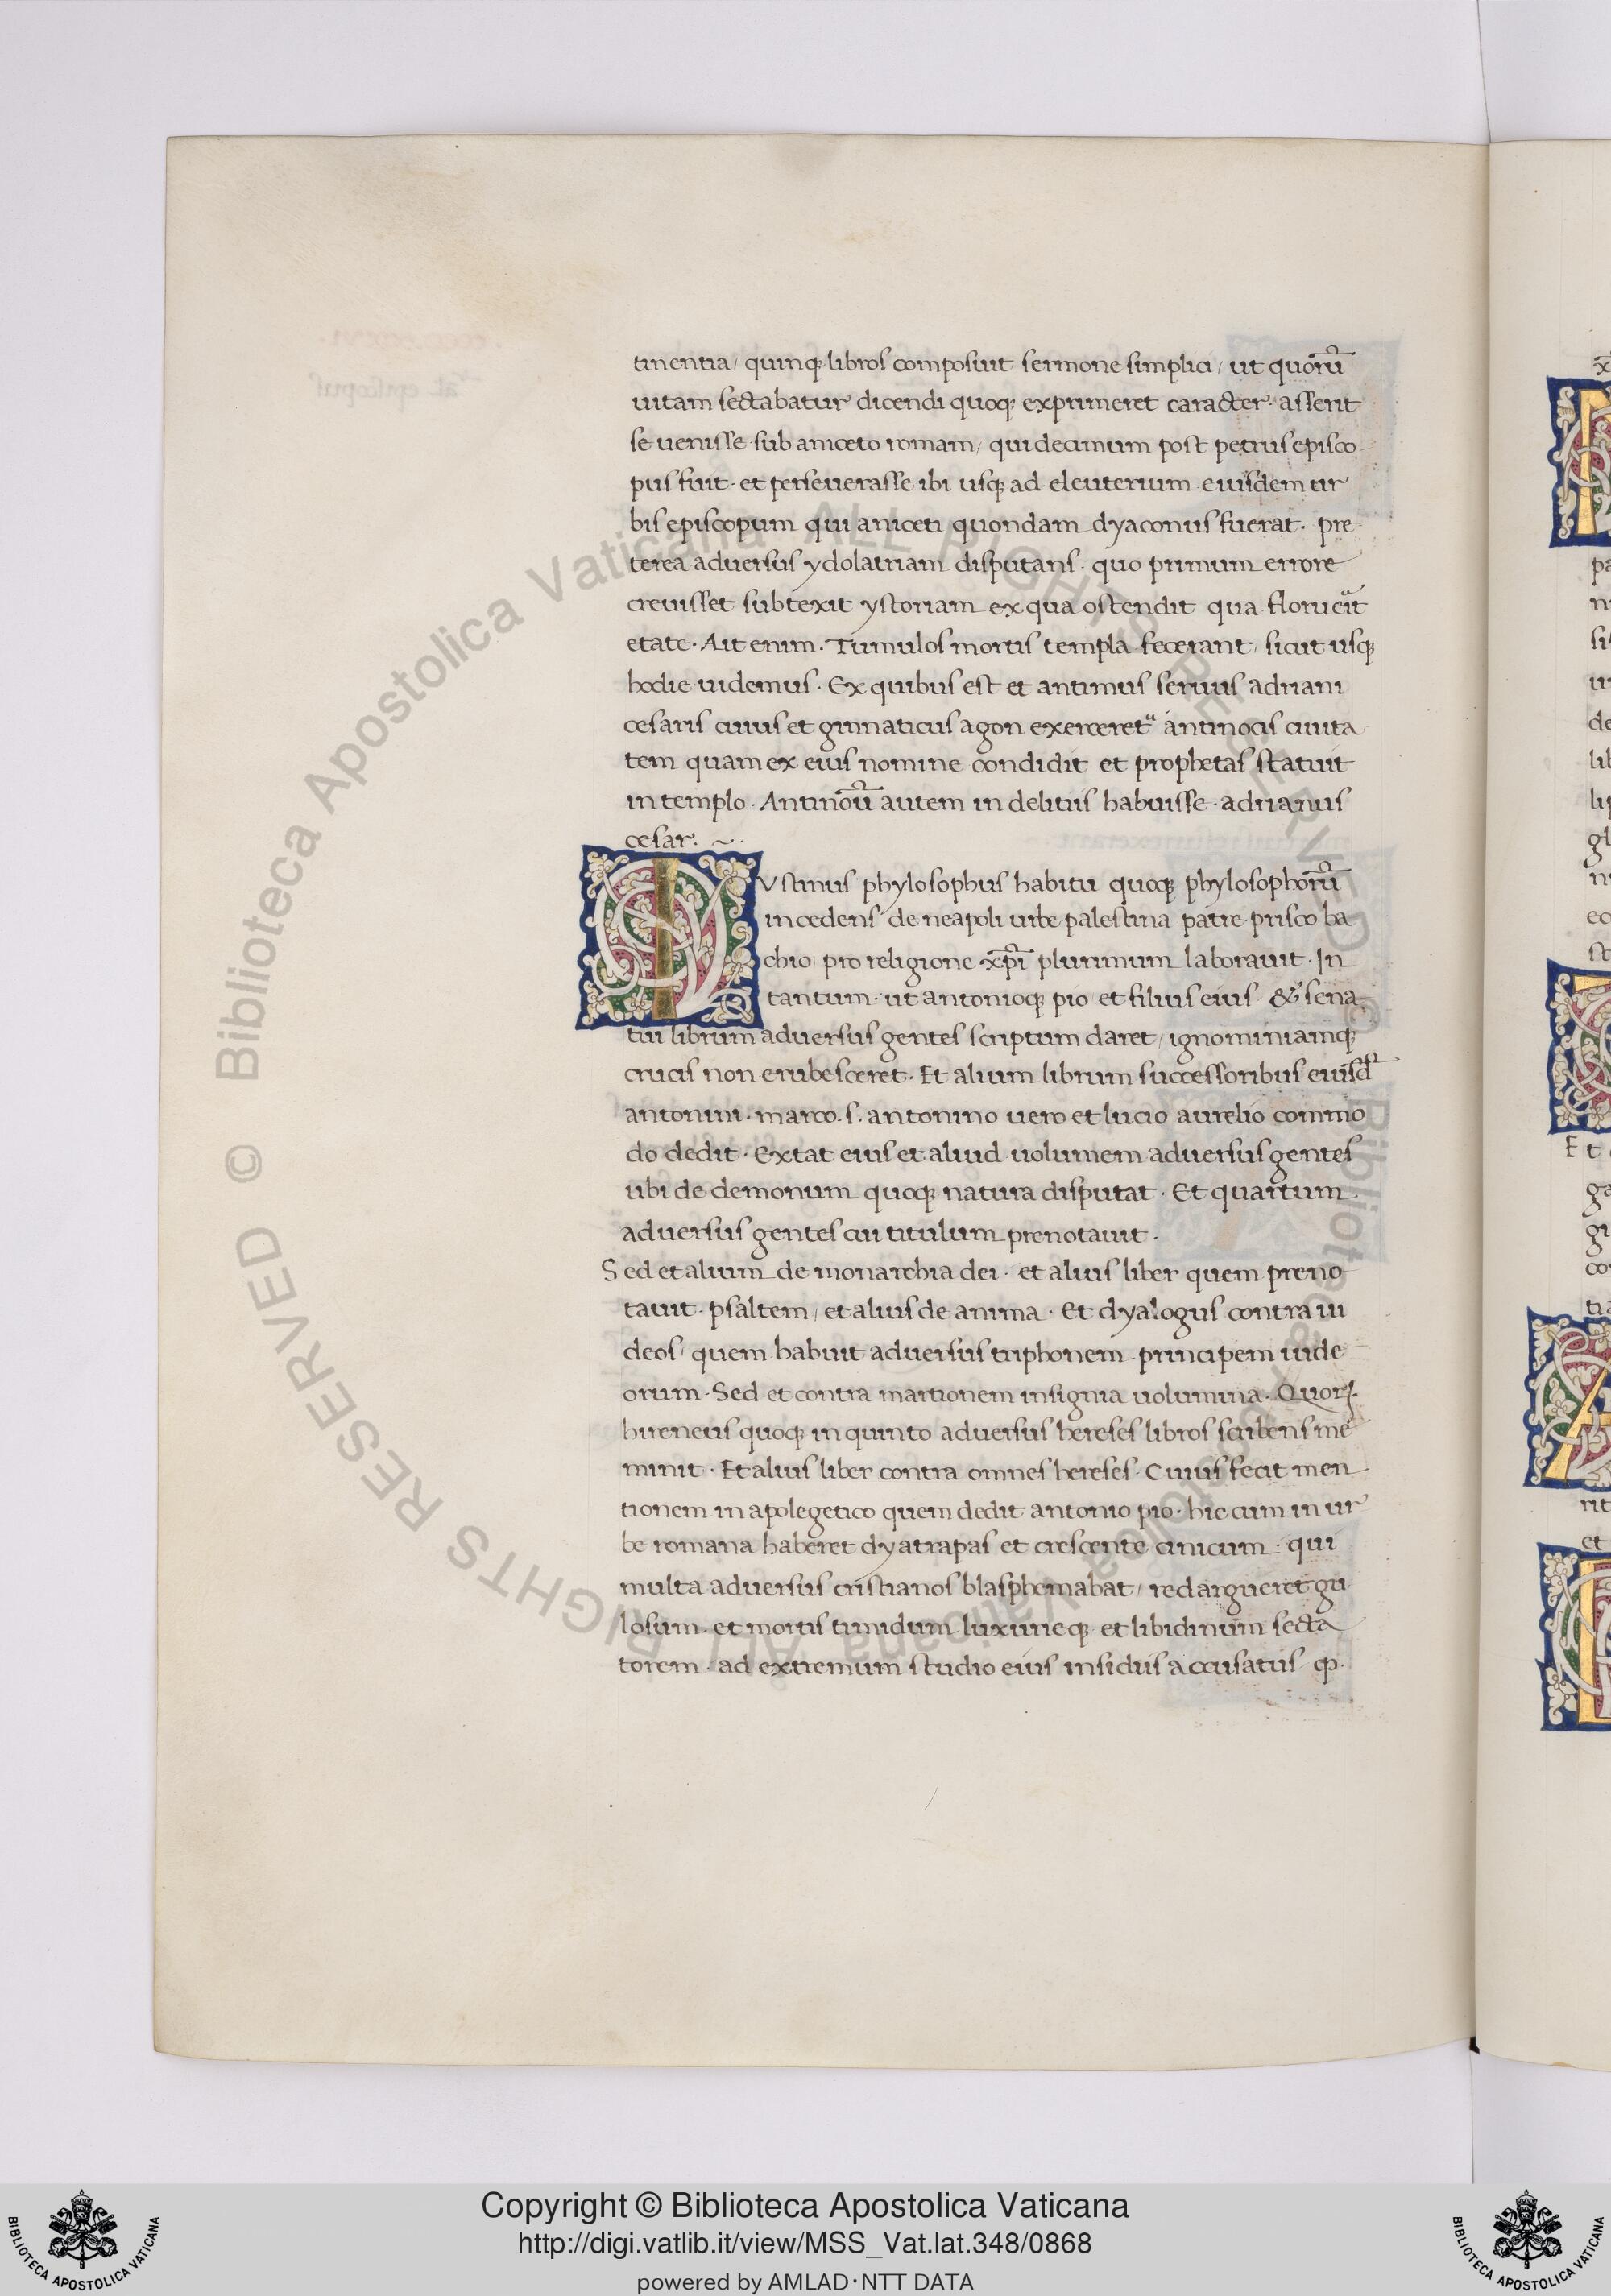 tinentia / quinq; libros composuit sermone simplici / ut quorū
uitam sectabatur dicendi quoq; exprimeret caracter · asserit
se uenisse sub aniceto romam / qui decimum post petrus episco
pus fuit · et perseuerasse ibi usq; ad eleuterium eiusdem ur
bis episcopum qui aniceti quondam dyaconus fuerat · pre
terea aduersus ydolatriam disputans · quo primum errore
creuisset subtexit ystoriam ex qua ostendit qua floruerit
etate · Ait enim · Tumulos mortis templa fecerant / sicut usq;
hodie uidemus · Ex quibus est et antimus seruus adriani
cesaris cuius et ginnaticus agon exerceret antinocis ciuita
tem quam ex eius nomine condidit et prophetas statuit
in templo · Antinoū autem in delitiis habuisse · adrianus
cesar · ~ ·
IVstinus phylosophus habitu quoq; phylosophorū
incedens de neapoli urbe palestina patre prisco ba
chio pro religione xp̄i plurimum laborauit · In
tantum · ut antonioq; pio et filiis eius & sena
tui librum aduersus gentes scriptum daret / ignominiamq;
crucis non erubesceret · Et alium librum successoribus eiusd̄
antonini · marco · s · antonino uero et lucio aurelio commo
do dedit · Extat eius et aliud uolumem aduersus gentes
ubi de demonum quoq; natura disputat · Et quartum
aduersus gentes cui titulum prenotauit ·
Sed et alium de monarchia dei · et alius liber quem preno
tauit · psaltem / et alius de anima · Et dyalogus contra iu
deos / quem habuit aduersus triphonem principem iude
orum · Sed et contra martionem insignia uolumina · Quorꝝ
hireneus quoq; in quinto aduersus hereses libros scribens me
minit · Et alius liber contra omnes hereses · Cuius fecit men
tionem in apolegetico quem dedit antonio pio · hic cum in ur
be romana haberet dyatrapas et crescente cinicum · qui
multa aduersus cristianos blasphemabat / redargueret gu
losum · et mortis timidum luxurieq; et libidinum secta
torem · ad extremum studio eius insidiis accusatus ꝙ ·
© Biblioteca Apostolica Vaticana ALL RIGHTS RESERVED © Biblioteca Apostolica Vaticana ALL RIGHTS RESERVED
Copyright © Biblioteca Apostolica Vaticana
http://digi.vatlib.it/view/MSS_Vat.lat.348/0868
powered by AMLAD·NTT DATA
BIBLIOTECA APOSTOLICA VATICANA
BIBLIOTECA APOSTOLICA VATICANA